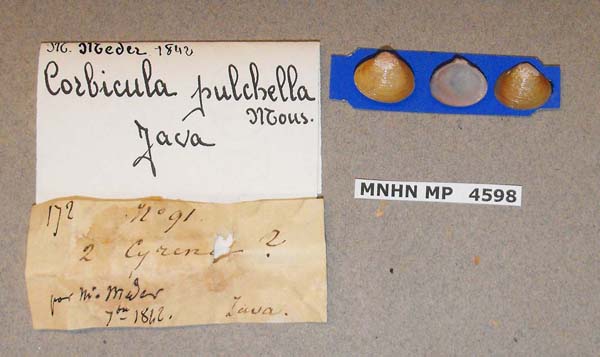 M. Meder 1842
Corbicula pulchella
Mous.
Java
MNHN MP 4598
172 No 91.
2 Cyrena ?
par Mr. Meder
7bre 1842. Java.